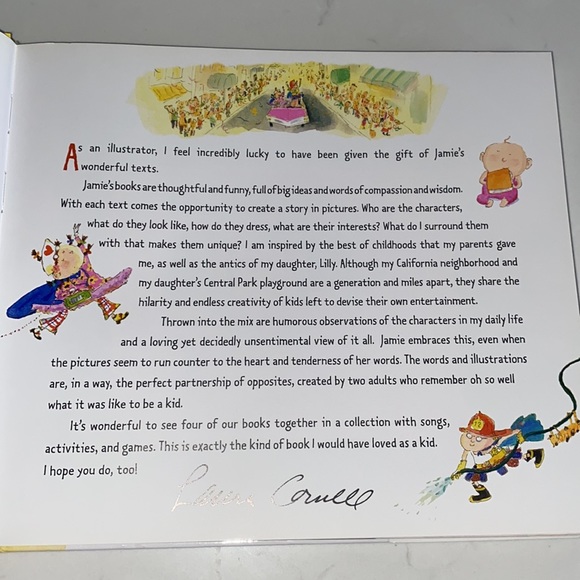 As an illustrator, I feel incredibly lucky to have been given the gift of Jamie's
wonderful texts.
Jamie's books are thoughtful and funny, full of big ideas and words of compassion and wisdom.
With each text comes the opportunity to create a story in pictures. Who are the characters,
what do they look like, how do they dress, what are their interests? What do I surround them
with that makes them unique? I am inspired by the best of childhoods that my parents gave
me, as well as the antics of my daughter, Lilly. Although my California neighborhood and
my daughter's Central Park playground are a generation and miles apart, they share the
hilarity and endless creativity of kids left to devise their own entertainment.
Thrown into the mix are humorous observations of the characters in my daily life
and a loving yet decidedly unsentimental view of it all. Jamie embraces this, even when
the pictures seem to run counter to the heart and tenderness of her words. The words and illustrations
are, in a way, the perfect partnership of opposites, created by two adults who remember oh so well
what it was like to be a kid.
It's wonderful to see four of our books together in a collection with songs,
activities, and games. This is exactly the kind of book I would have loved as a kid.
I hope you do, too!
Laura Cornell